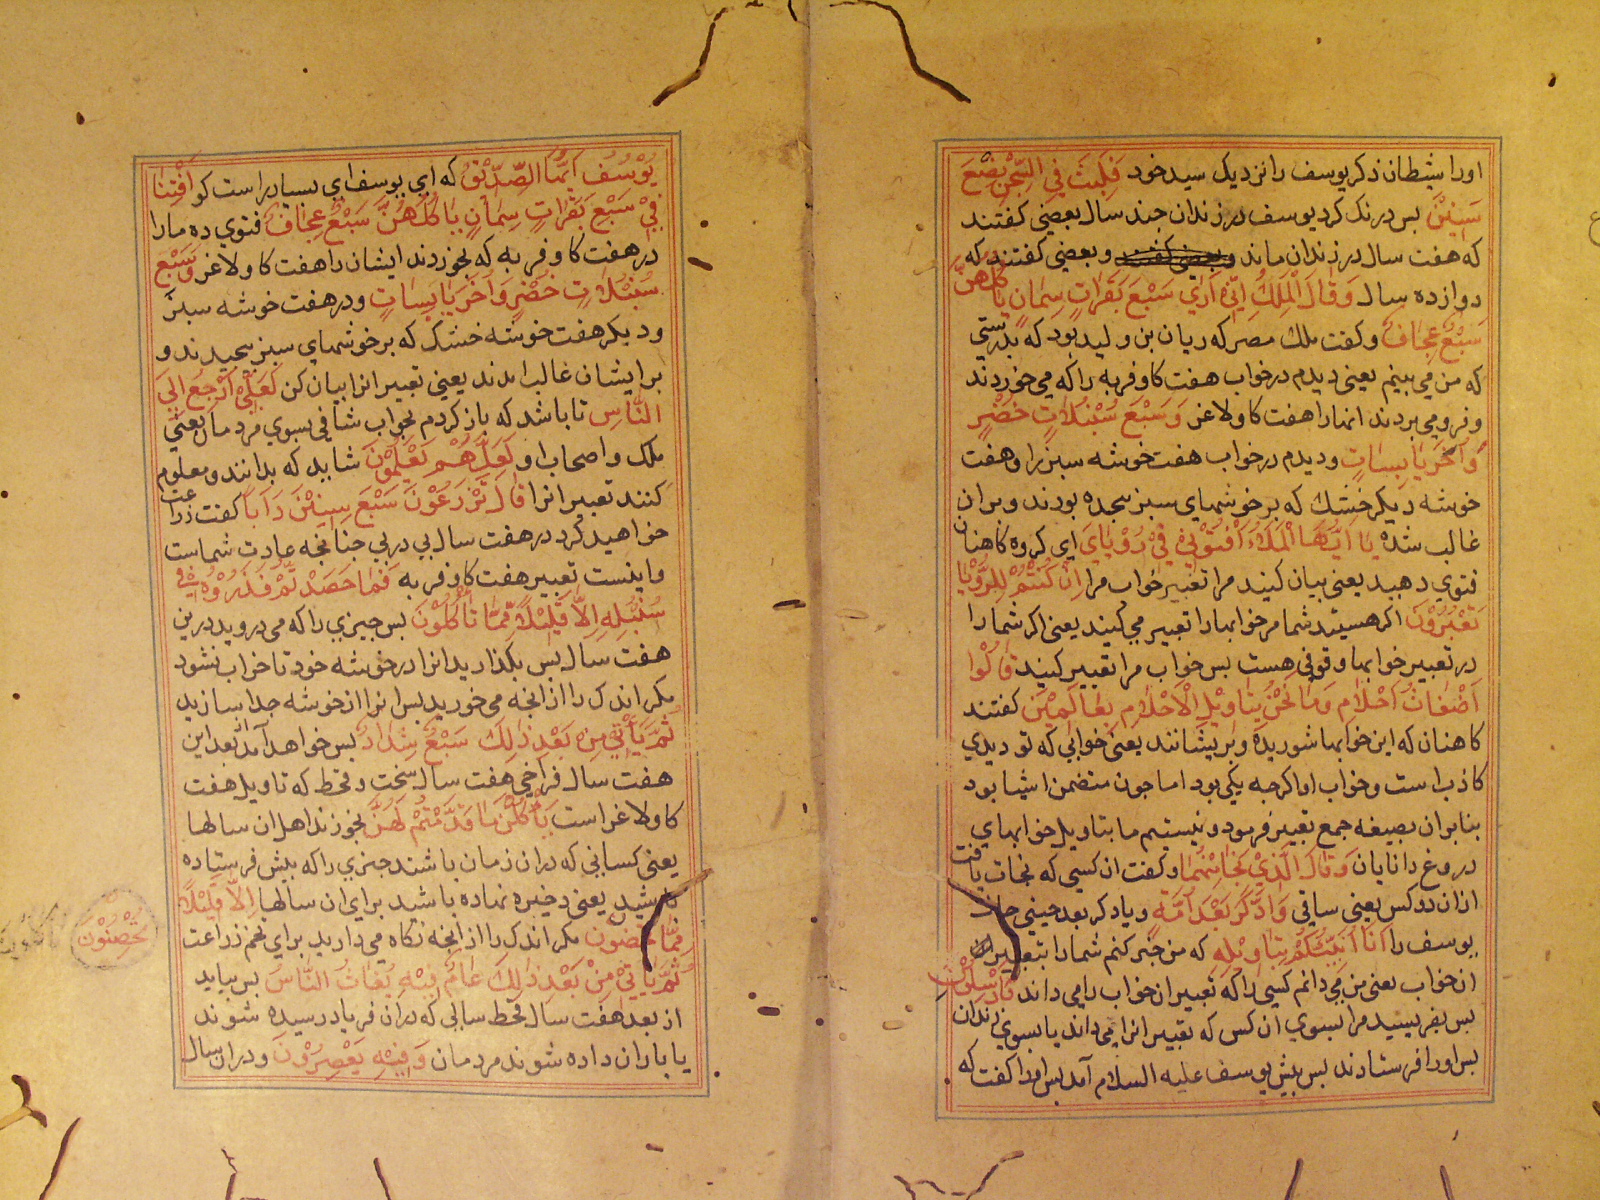 اورا شیطان ذکر یوسف را نزدیک سید خود فَلَبِثَ فِي السِّجْنِ بِضْعَ
سِنِيْنَ بس درنک کرد یوسف در زندان چند سال بعضی کفتند
که هفت سال در زندان ماند و بعضی کفتند و بعضی کفتند که
دوازده سال وَقَالَ الْمَلِكُ اِنِّيْ اَرَي سَبْعَ بَقَرَاتٍ سِمَانٍ يَاكُلُهُنَّ
سَبْعٌ عِجَافٌ و کفت ملك مصر که ریان بن ولید بود که بدرستی
که من می بینم یعنی دیدم در خواب هفت کاو فربه را که می خوردند
و فرو می بردند انهارا هفت کاو لاغر وَسَبْعَ سُنْبُلَاتٍ خُضْرٍ
وَاُخَرَ يَابِسَاتٍ و دیدم در خواب هفت خوشه سبز را و هفت
خوشه دیکر خشك که بر خوشهای سبز بیجیده بودند و بران
غالب شده يَا اَيُّهَا الْمَلَاُ اَفْتُوْنِيْ فِيْ رُؤْيَايَ ای کروه کاهنان
فتوی دهید یعنی بیان کنید مرا تعبیر خواب مرا اِنْ كُنْتُمْ لِلرُّؤْيَا
تَعْبُرُوْنَ اکر هستید شما مر خوابهارا تعبیر می کنید یعنی اکر شما را
در تعبیر خوابها وقوفی هست بس خواب مرا تعبیر کنید قَالُوا
اَضْغَاثُ اَحْلَامٍ وَمَا نَحْنُ بِتَاوِيْلِ الْاَحْلَامِ بِعَالِمِيْنَ کفتند
کاهنان که این خوابها شوریده و پریشانند یعنی خوابی که تو دیدی
کاذب است و خواب او اکرجه یکی بود اما جون متضمن اشیا بود
بنابران بصیغه جمع تعبیر فرمود و نیستیم ما بتاویل خوابهای
دروغ دانایان وَقَالَ الَّذِيْ نَجَا مِنْهُمَا و کفت ان کسی که نجات یافت
ازان دو کس یعنی ساقی وَادَّكَرَ بَعْدَ اُمَّةٍ و یاد کر بعد حینی حال
یوسف را اَنَا اُنَبِّئُكُمْ بِتَاوِيْلِهِ که من خبر کنم شمارا بتعبیر
ان خواب یعنی من می دانم کسی را که تعبیر ان خواب را می داند فَاَرْسِلُوْنِ
بس بفرستید مرا بسوی ان کس که تعبیر انرا می داند یا بسوی زندان
بس اورا فرستادند بس بیش یوسف علیه السلام آمد بس اورا کفت که
يُوْسُفُ اَيُّهَا الصِّدِّيْقُ که ای یوسف ای بسیار راست کو اَفْتِنَا
فِيْ سَبْعِ بَقَرَاتٍ سِمَانٍ يَاكُلُهُنَّ سَبْعٌ عِجَافٌ فتوی ده مارا
در هفت کاو فربه که بخوردند ایشان را هفت کاو لاغر وَسَبْعِ
سُنْبُلَاتٍ خُضْرٍ وَاُخَرَ يَابِسَاتٍ و در هفت خوشه سبز
و دیکر هفت خوشه خشک که بر خوشهای سبز بیجیدند و
بر ایشان غالب امدند یعنی تعبیر انرا بیان کن لَعَلِّيْ اَرْجِعُ اِلَي
النَّاسِ تا باشد که باز کردم بجواب شافی بسوی مردمان یعنی
ملک و اصحاب او لَعَلَّهُمْ يَعْلَمُوْنَ شاید که بدانند و معلوم
کنند تعبیر انرا قَالَ تَزْرَعُوْنَ سَبْعَ سِنِيْنَ دَاَبًا کفت زراعت
خواهید کرد در هفت سال بی در بی جنانجه عادت شماست
و اینست تعبیر هفت کاو فربه فَمَا حَصَدْتُمْ فَذَرُوْهُ فِيْ
سُنْبُلِهِ اِلَّا قَلِيْلًا مِّمَّا تَاْكُلُوْنَ بس جیزی را که می دروید درین
هفت سال بس بکذارید انرا در خوشه خود تا خراب نشود
مکر اندک را از انجه می خورید بس انرا از خوشه جدا سازید
ثُمَّ يَاْتِيْ مِنْ بَعْدِ ذٰلِكَ سَبْعٌ شِدَادٌ بس خواهد آمد بعد این
هفت سال فراخی هفت سال سخت و قحط که تاویل هفت
کاو لاغر است يَاْكُلْنَ مَا قَدَّمْتُمْ لَهُنَّ بخورند اهل ان سالها
یعنی کسانی که دران زمان باشند جیزی را که بیش فرستاده
باشید یعنی ذخیره نهاده باشید برای ان سالها اِلَّا قَلِيْلًا
مِّمَّا تُحْصِنُوْنَ مکر اندک را از انجه نکاه می دارید برای تخم زراعت
ثُمَّ يَاْتِيْ مِنْ بَعْدِ ذٰلِكَ عَامٌ فِيْهِ يُغَاثُ النَّاسُ بس بیاید
از بعد هفت سال قحط سالی که دران فریاد رسیده شوند
یا باران داده شوند مردمان وَفِيْهِ يَعْصِرُوْنَ و دران سال
تُحْصِنُوْنَ